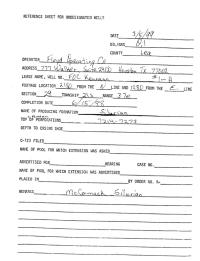 REFERENCE SHEET FOR UNDESIGNATED WELLS
DATE 3/6/89
OIL/GAS Oil
COUNTY Lea
OPERATOR Floyd Operating Co
ADDRESS 777 Walker, Suite 2400 Houston TX 77002
LEASE NAME, WELL NO. FOC #1-A
FOOTAGE LOCATION 2180 FROM THE N LINE AND 1980 FROM THE E LINE
SECTION 29 TOWNSHIP RANGE 37e
COMPLETION DATE 6/15/88
NAME OF PRODUCING FORMATION Silurian
TOP OF PERFORATIONS
DEPTH TO CASING SHOE
C-123 FILED
NAME OF POOL FOR WHICH EXTENSION WAS ASKED
ADVERTISED FOR HEARING CASE NO.
NAME OF POOL FOR WHICH EXTENSION WAS ADVERTISED
PLACED IN BY ORDER NO. R-
REMARKS McCormack Silurian